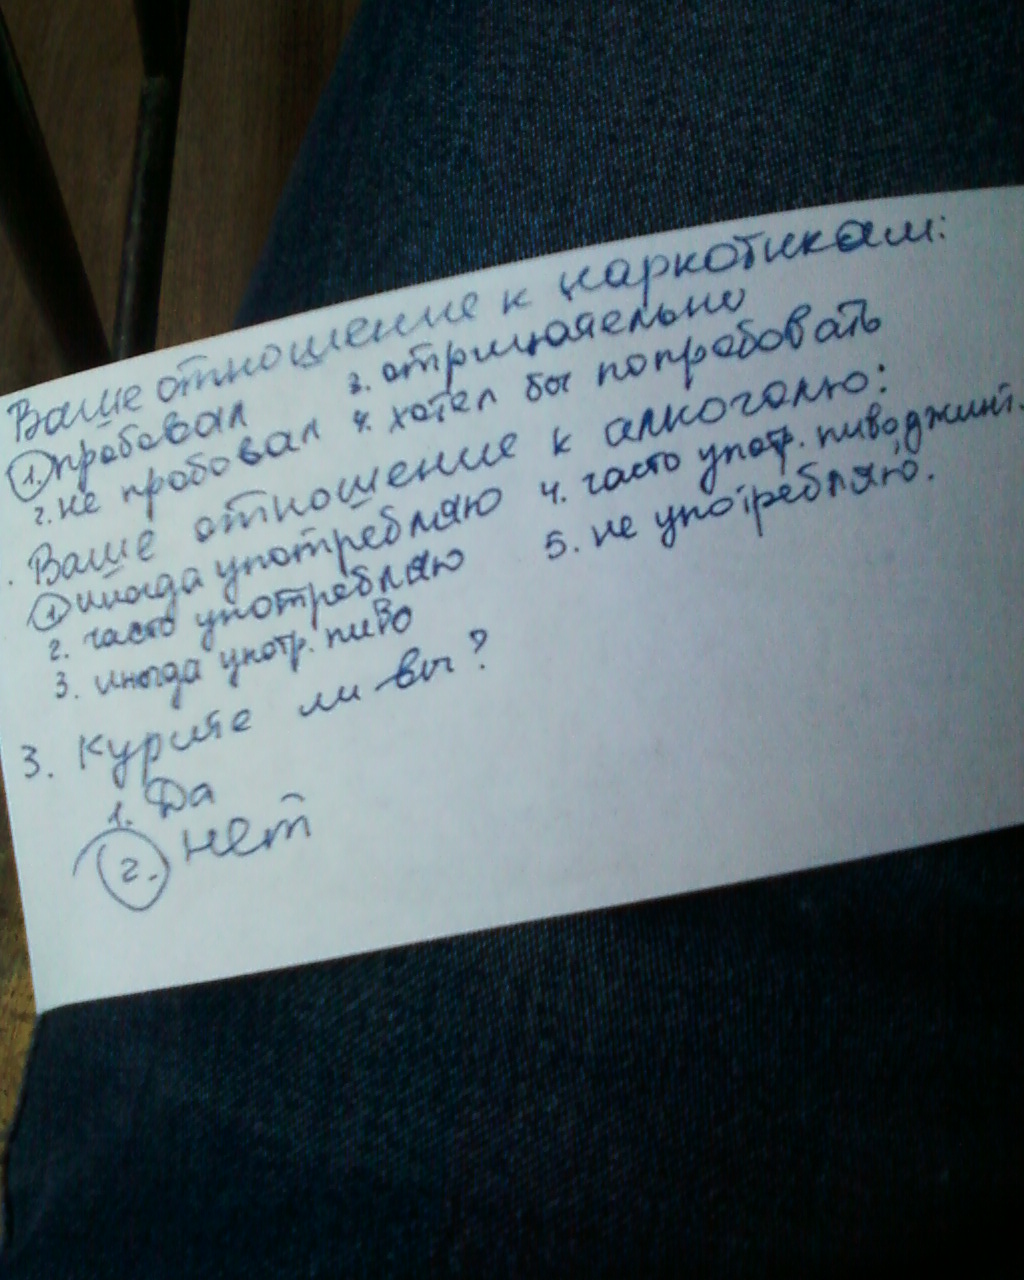 Ваше отношение к наркотикам:
1. пробовал 3. отрицательно
2. не пробовал 4. хотел бы попробовать
. Ваше отношение к алкоголю:
1. иногда употребляю 4. часто употр. пиво, джинт.
2. часто употребляю 5. не употребляю.
3. иногда употр. пиво
3. Курите ли вы?
1. Да
2. нет